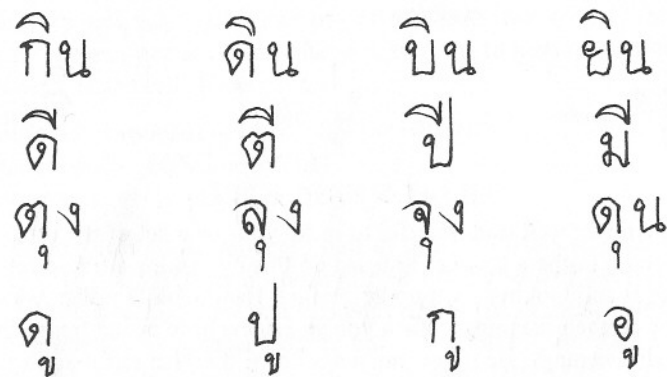 กิน ดิน บิน ยิน
ดี ตี ปี มี
ตุง ลุง จุง ดุน
ดู ปู กู อู